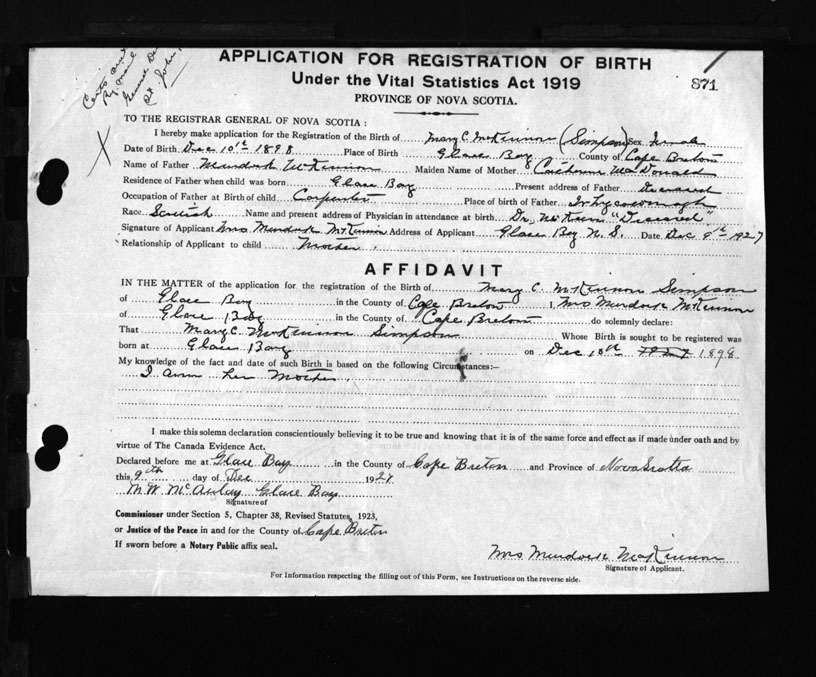 APPLICATION FOR REGISTRATION OF BIRTH
Under the Vital Statistics Act 1919
PROVINCE OF NOVA SCOTIA.
871
TO THE REGISTRAR GENERAL OF NOVA SCOTIA :
I hereby make application for the Registration of the Birth of Mary C. McKinnon (Simpson) Sex Female
Date of Birth Dec 10th 1898 Place of Birth Glace Bay County of Cape Breton
Name of Father Murdock McKinnon Maiden Name of Mother McDonald
Residence of Father when child was born Glace Bay Present address of Father Deceased
Occupation of Father at Birth of child Carpenter Place of birth of Father
Race Scotish Name and present address of Physician in attendance at birth Dr. McKeen "Diseased"
Signature of Applicant Mrs Murdock McKinnon Address of Applicant Glace Bay N. S. Date Dec 9th 1927
Relationship of Applicant to child Mother
AFFIDAVIT
IN THE MATTER of the application for the registration of the Birth of Mary C. McKinnon Simpson
of Glace Bay in the County of Cape Breton I, Mrs Murdock McKinnon
of Glace Bay in the County of Cape Breton do solemnly declare:
That Mary C. McKinnon Simpson Whose Birth is sought to be registered was
born at Glace Bay on Dec 10th 1898.
My knowledge of the fact and date of such Birth is based on the following Circumstances:—
I am her Mother.
I make this solemn declaration conscientiously believing it to be true and knowing that it is of the same force and effect as if made under oath and by
virtue of The Canada Evidence Act.
Declared before me at Glace Bay in the County of Cape Breton and Province of Nova Scotia
this 9th day of Dec 1927
M. W. McAulay Glace Bay
Signature of
Commissioner under Section 5, Chapter 38, Revised Statutes, 1923,
or Justice of the Peace in and for the County of Cape Breton
If sworn before a Notary Public affix seal.
Mrs Murdock McKinnon
Signature of Applicant.
For Information respecting the filling out of this Form, see Instructions on the reverse side.